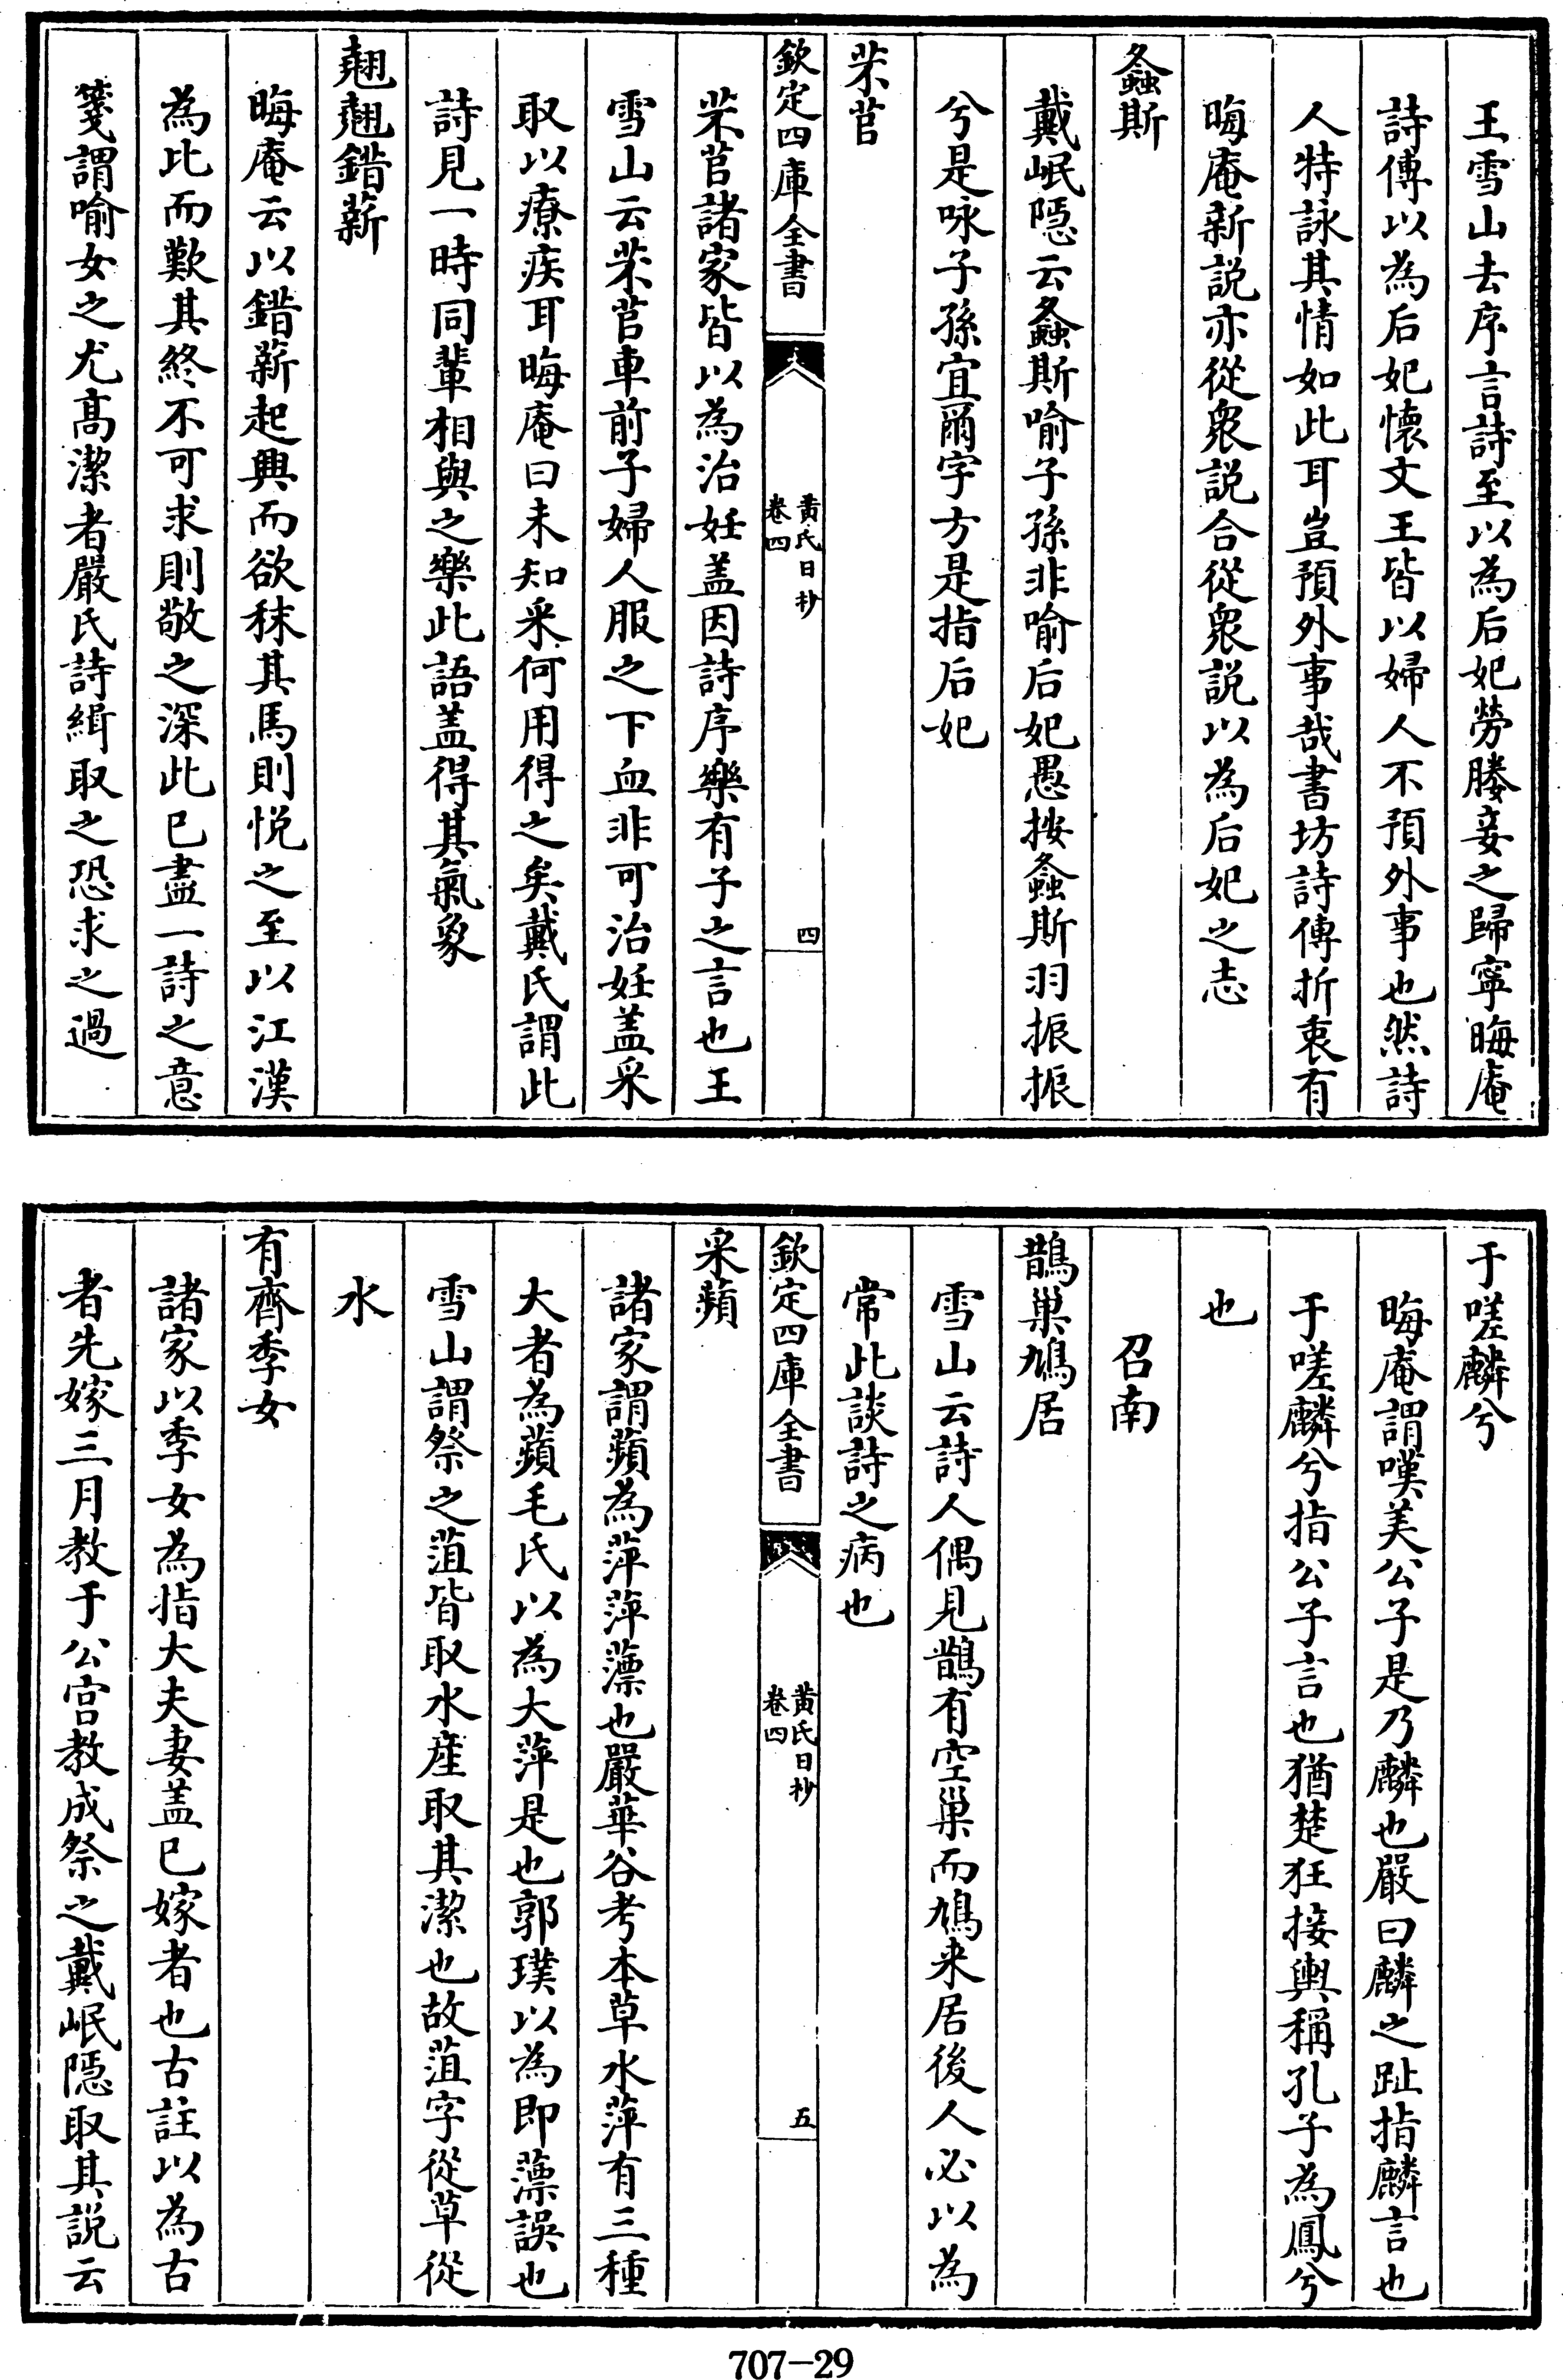 王雪山去序言詩至以為后妃勞媵妾之歸寧晦庵
詩傳以為后妃懷文王皆以婦人不預外事也然詩
人特詠其情如此耳豈預外事哉書坊詩傳折衷有
晦庵新説亦從衆説合從衆説以為后妃之志
螽斯
戴岷隠云螽斯喻子孫非喻后妃愚按螽斯羽振振
兮是咏子孫宜爾字方是指后妃
芣苢
欽定四庫全書
黃氏日抄
卷四
四
芣苢諸家皆以為治妊盖因詩序樂有子之言也王
雪山云芣苢車前子婦人服之下血非可治妊盖采
取以療疾耳晦庵曰未知采何用得之矣戴氏謂此
詩見一時同輩相與之樂此語盖得其氣象
翹翹錯薪
晦庵云以錯薪起興而欲秣其馬則悦之至以江漢
為比而歎其終不可求則敬之深此已盡一詩之意
箋謂喻女之尤髙潔者嚴氏詩緝取之恐求之過
于嗟麟兮
晦庵謂嘆美公子是乃麟也嚴曰麟之趾指麟言也
于嗟麟兮指公子言也猶楚狂接輿稱孔子為鳳兮
也
召南
鵲巢鳩居
雪山云詩人偶見鵲有空巢而鳩来居後人必以為
常此談詩之病也
欽定四庫全書
黃氏日抄
卷四
五
采蘋
諸家謂蘋為萍萍薸也嚴華谷考本草水萍有三種
大者為蘋毛氏以為大萍是也郭璞以為即薸誤也
雪山謂祭之菹皆取水産取其潔也故菹字從草從
水
有齊季女
諸家以季女為指大夫妻盖已嫁者也古註以為古
者先嫁三月教于公宫教成祭之戴岷隠取其説云
707-29